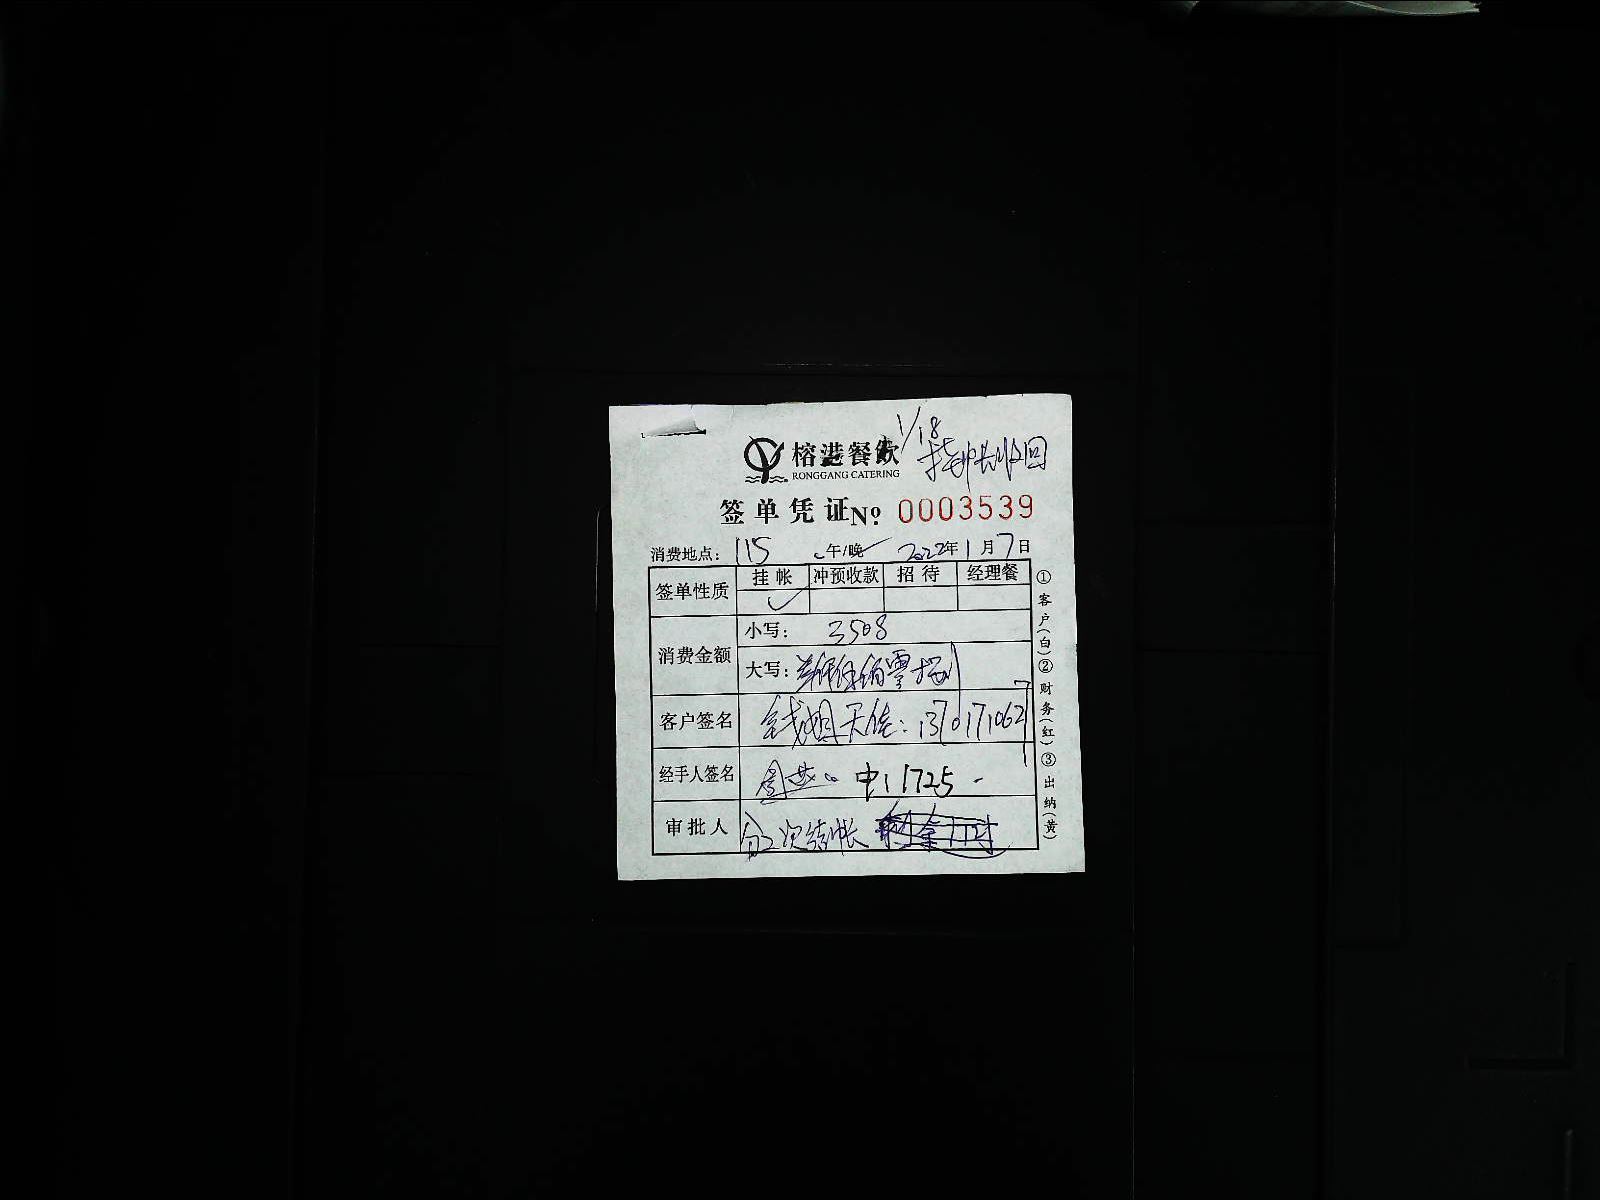 1/18
挂帐收回
榕港餐饮
RONGGANG CATERING
签单凭证 No 0003539
消费地点: 115 午/晚 2022年1月7日
签单性质 挂帐 冲预收款 招待 经理餐
消费金额 小写: 3508
大写: 叁仟伍佰零捌
客户签名 天佐: 1370171062
经手人签名 中11725
审批人 分次结帐
①客户(白)②财务(红)③出纳(黄)